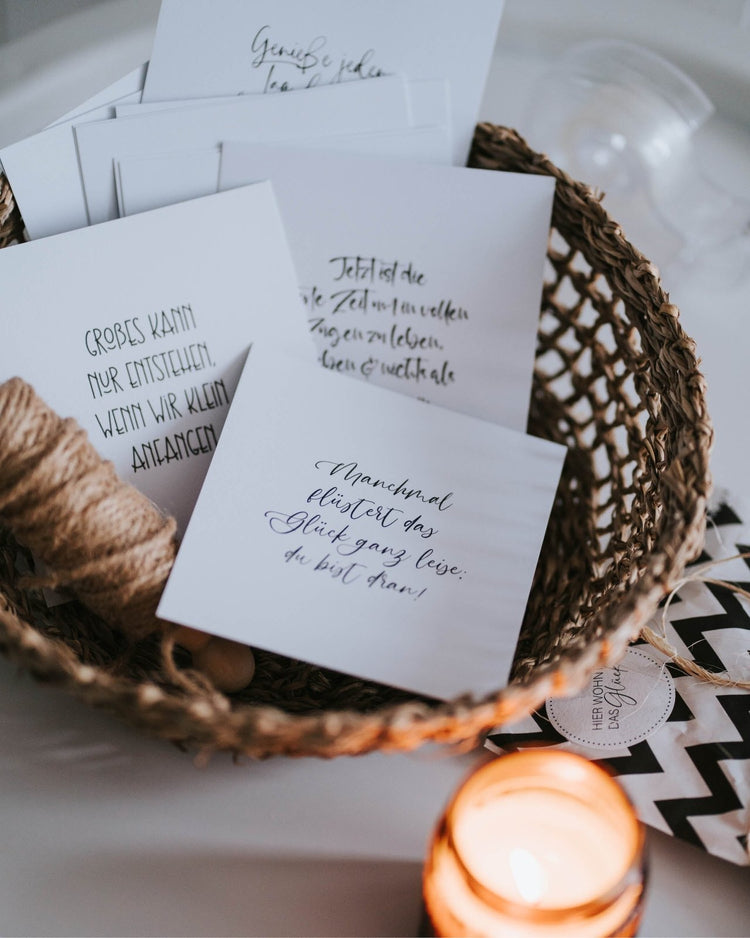 Genieße jeden
Tag
GROßES KANN
NUR ENTSTEHEN,
WENN WIR KLEIN
ANFANGEN
Jetzt ist die
Zeit um in vollen
Zügen zu leben,
& nichts als
Manchmal
flüstert das
Glück ganz leise:
du bist dran!
HIER WOHN
DAS Glück